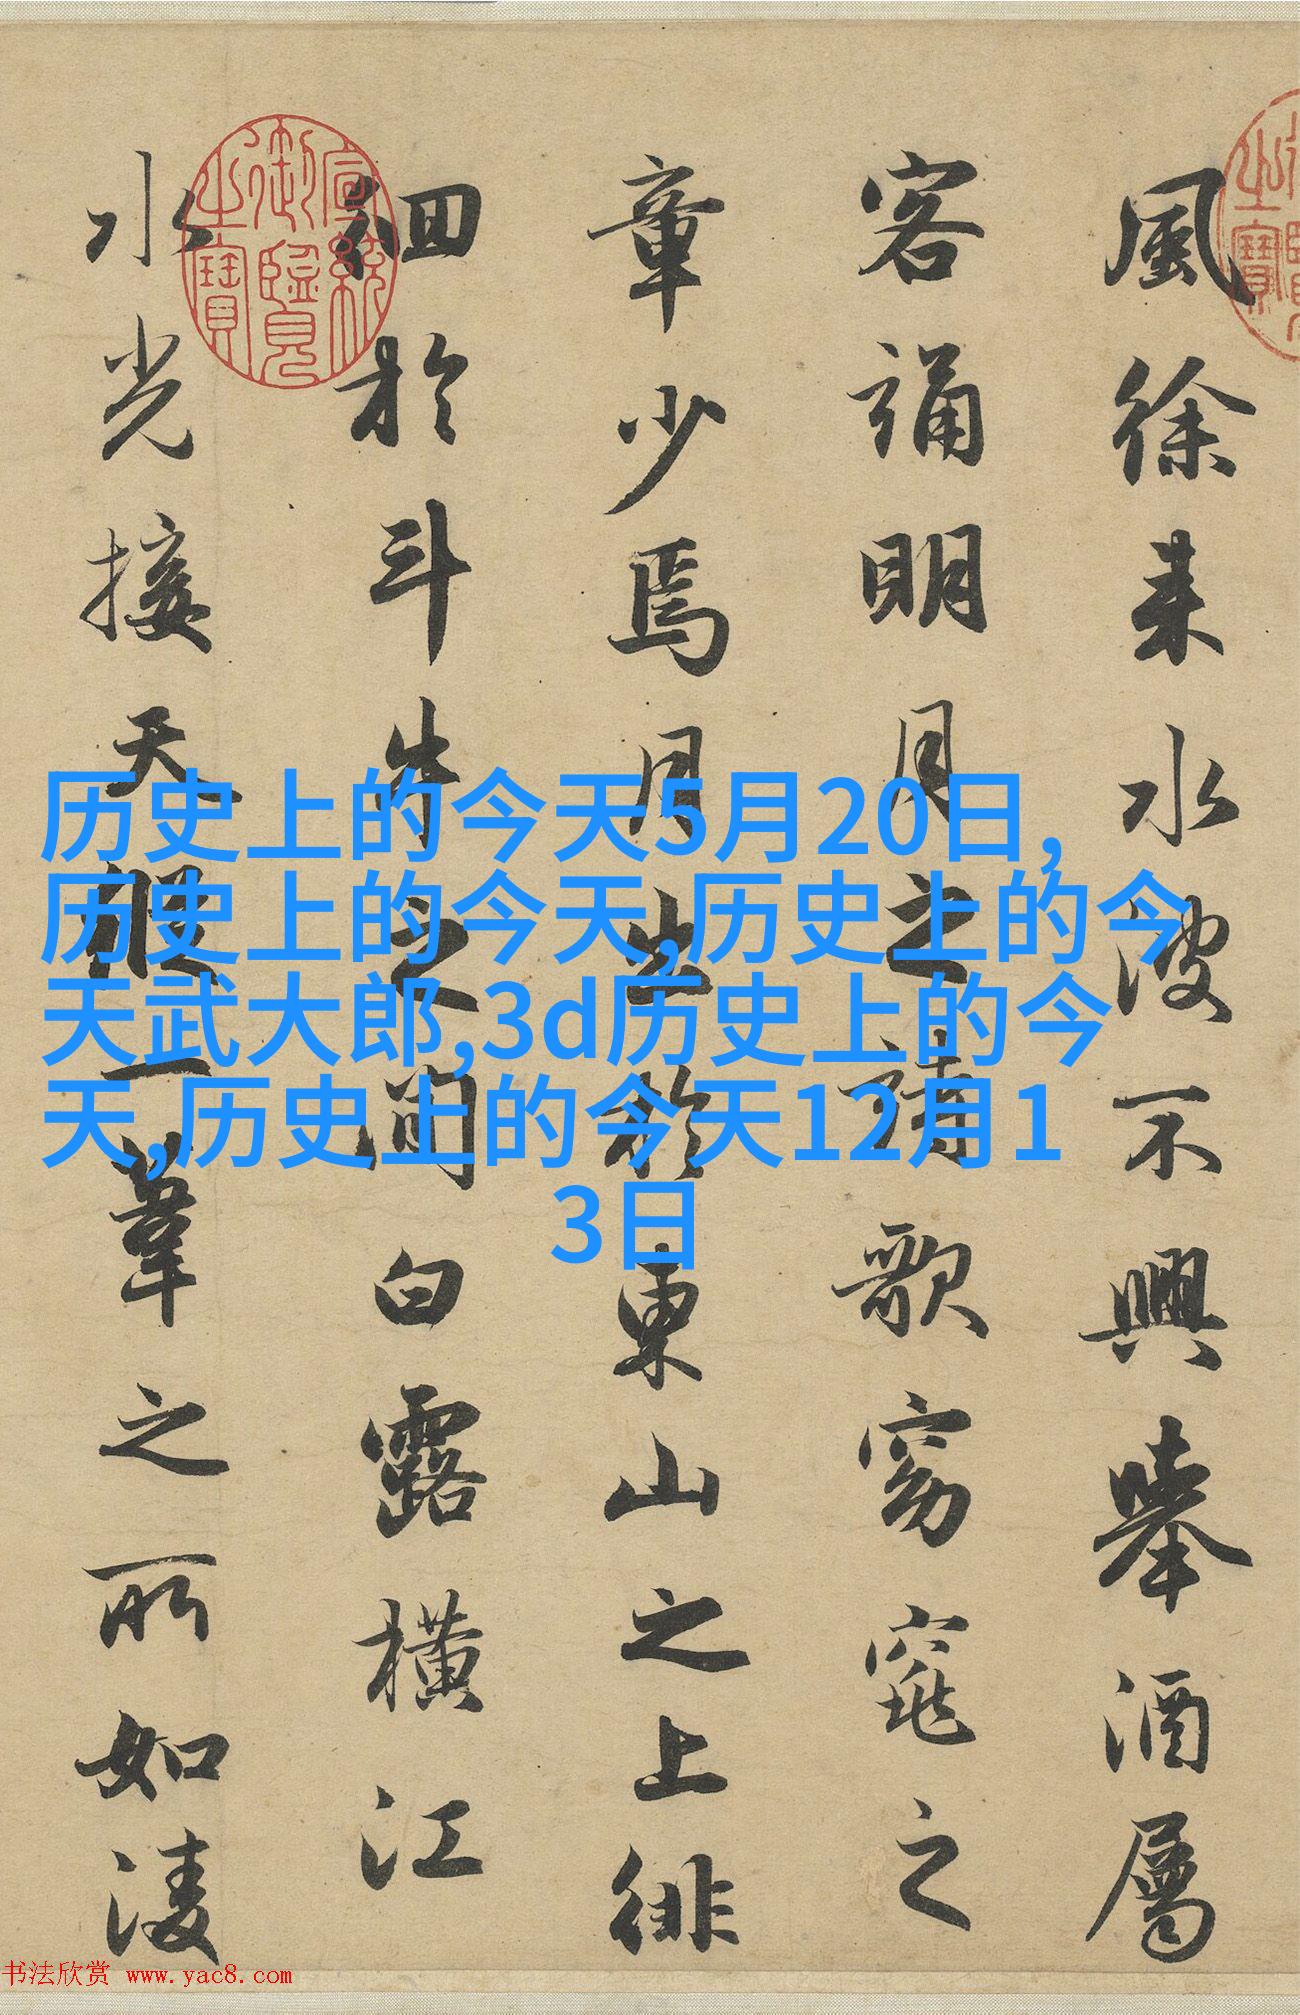 風徐来水波不興舉酒屬
客誦明月之詩歌窈窕之
章少焉月出於東山之上徘
徊於斗牛之間白露橫江
水光接天縱一葦之所如凌
宣統御覽之寶
历史上的今天5月20日,
历史上的今天,历史上的今
天武大郎,3d历史上的今
天,历史上的今天12月1
3日
书法欣赏 www.yac8.com